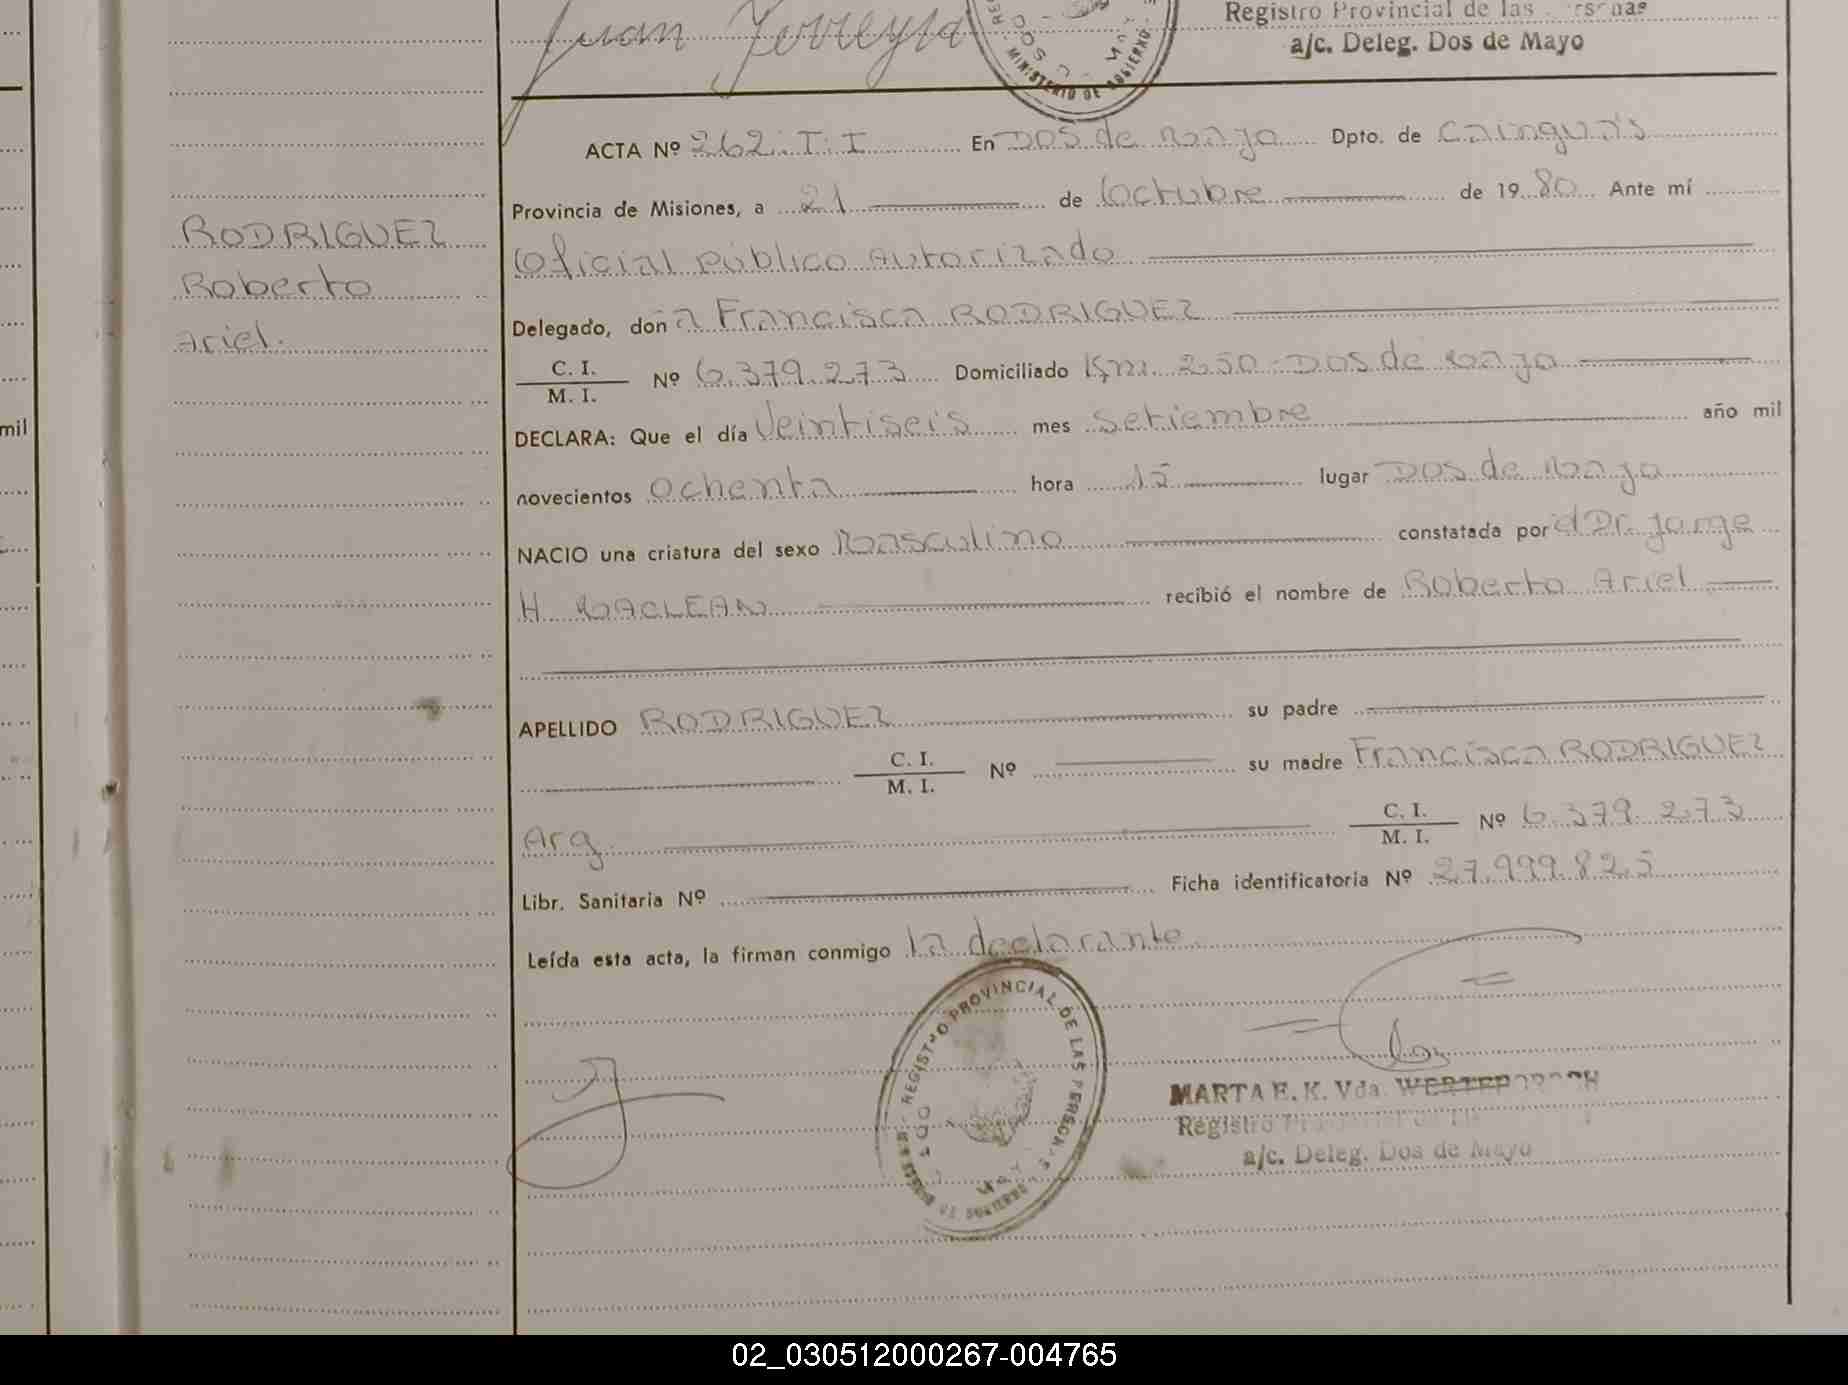 Juan Ferreyra
Registro Provincial de las
a/c. Deleg. Dos de Mayo
MINISTERIO DE GOBIERNO
mil
RODRIGUEZ
Roberto
Ariel.
ACTA Nº 262. T. I En Dos de Mayo Dpto. de Cainguas
Provincia de Misiones, a 21 de Octubre de 1980 Ante mí
Oficial Público Autorizado
Delegado, don a Francisca RODRIGUEZ
C. I.
M. I. Nº 6.379.273 Domiciliado Km. 250 - Dos de Mayo
DECLARA: Que el día Veintiseis mes setiembre año mil
novecientos ochenta hora 15 lugar Dos de Mayo
NACIO una criatura del sexo Masculino constatada por el Dr. Jorge
H. MACLEAN recibió el nombre de Roberto Ariel
APELLIDO RODRIGUEZ su padre
C. I.
M. I. Nº su madre Francisca RODRIGUEZ
Arg. C. I.
M. I. Nº 6.379.273
Libr. Sanitaria Nº Ficha identificatoria Nº 27.999.825
Leída esta acta, la firman conmigo la declarante
REGISTRO PROVINCIAL DE LAS PERSONAS
MARTA E. K. Vda.
Registro
a/c. Deleg. Dos de Mayo
02_030512000267-004765